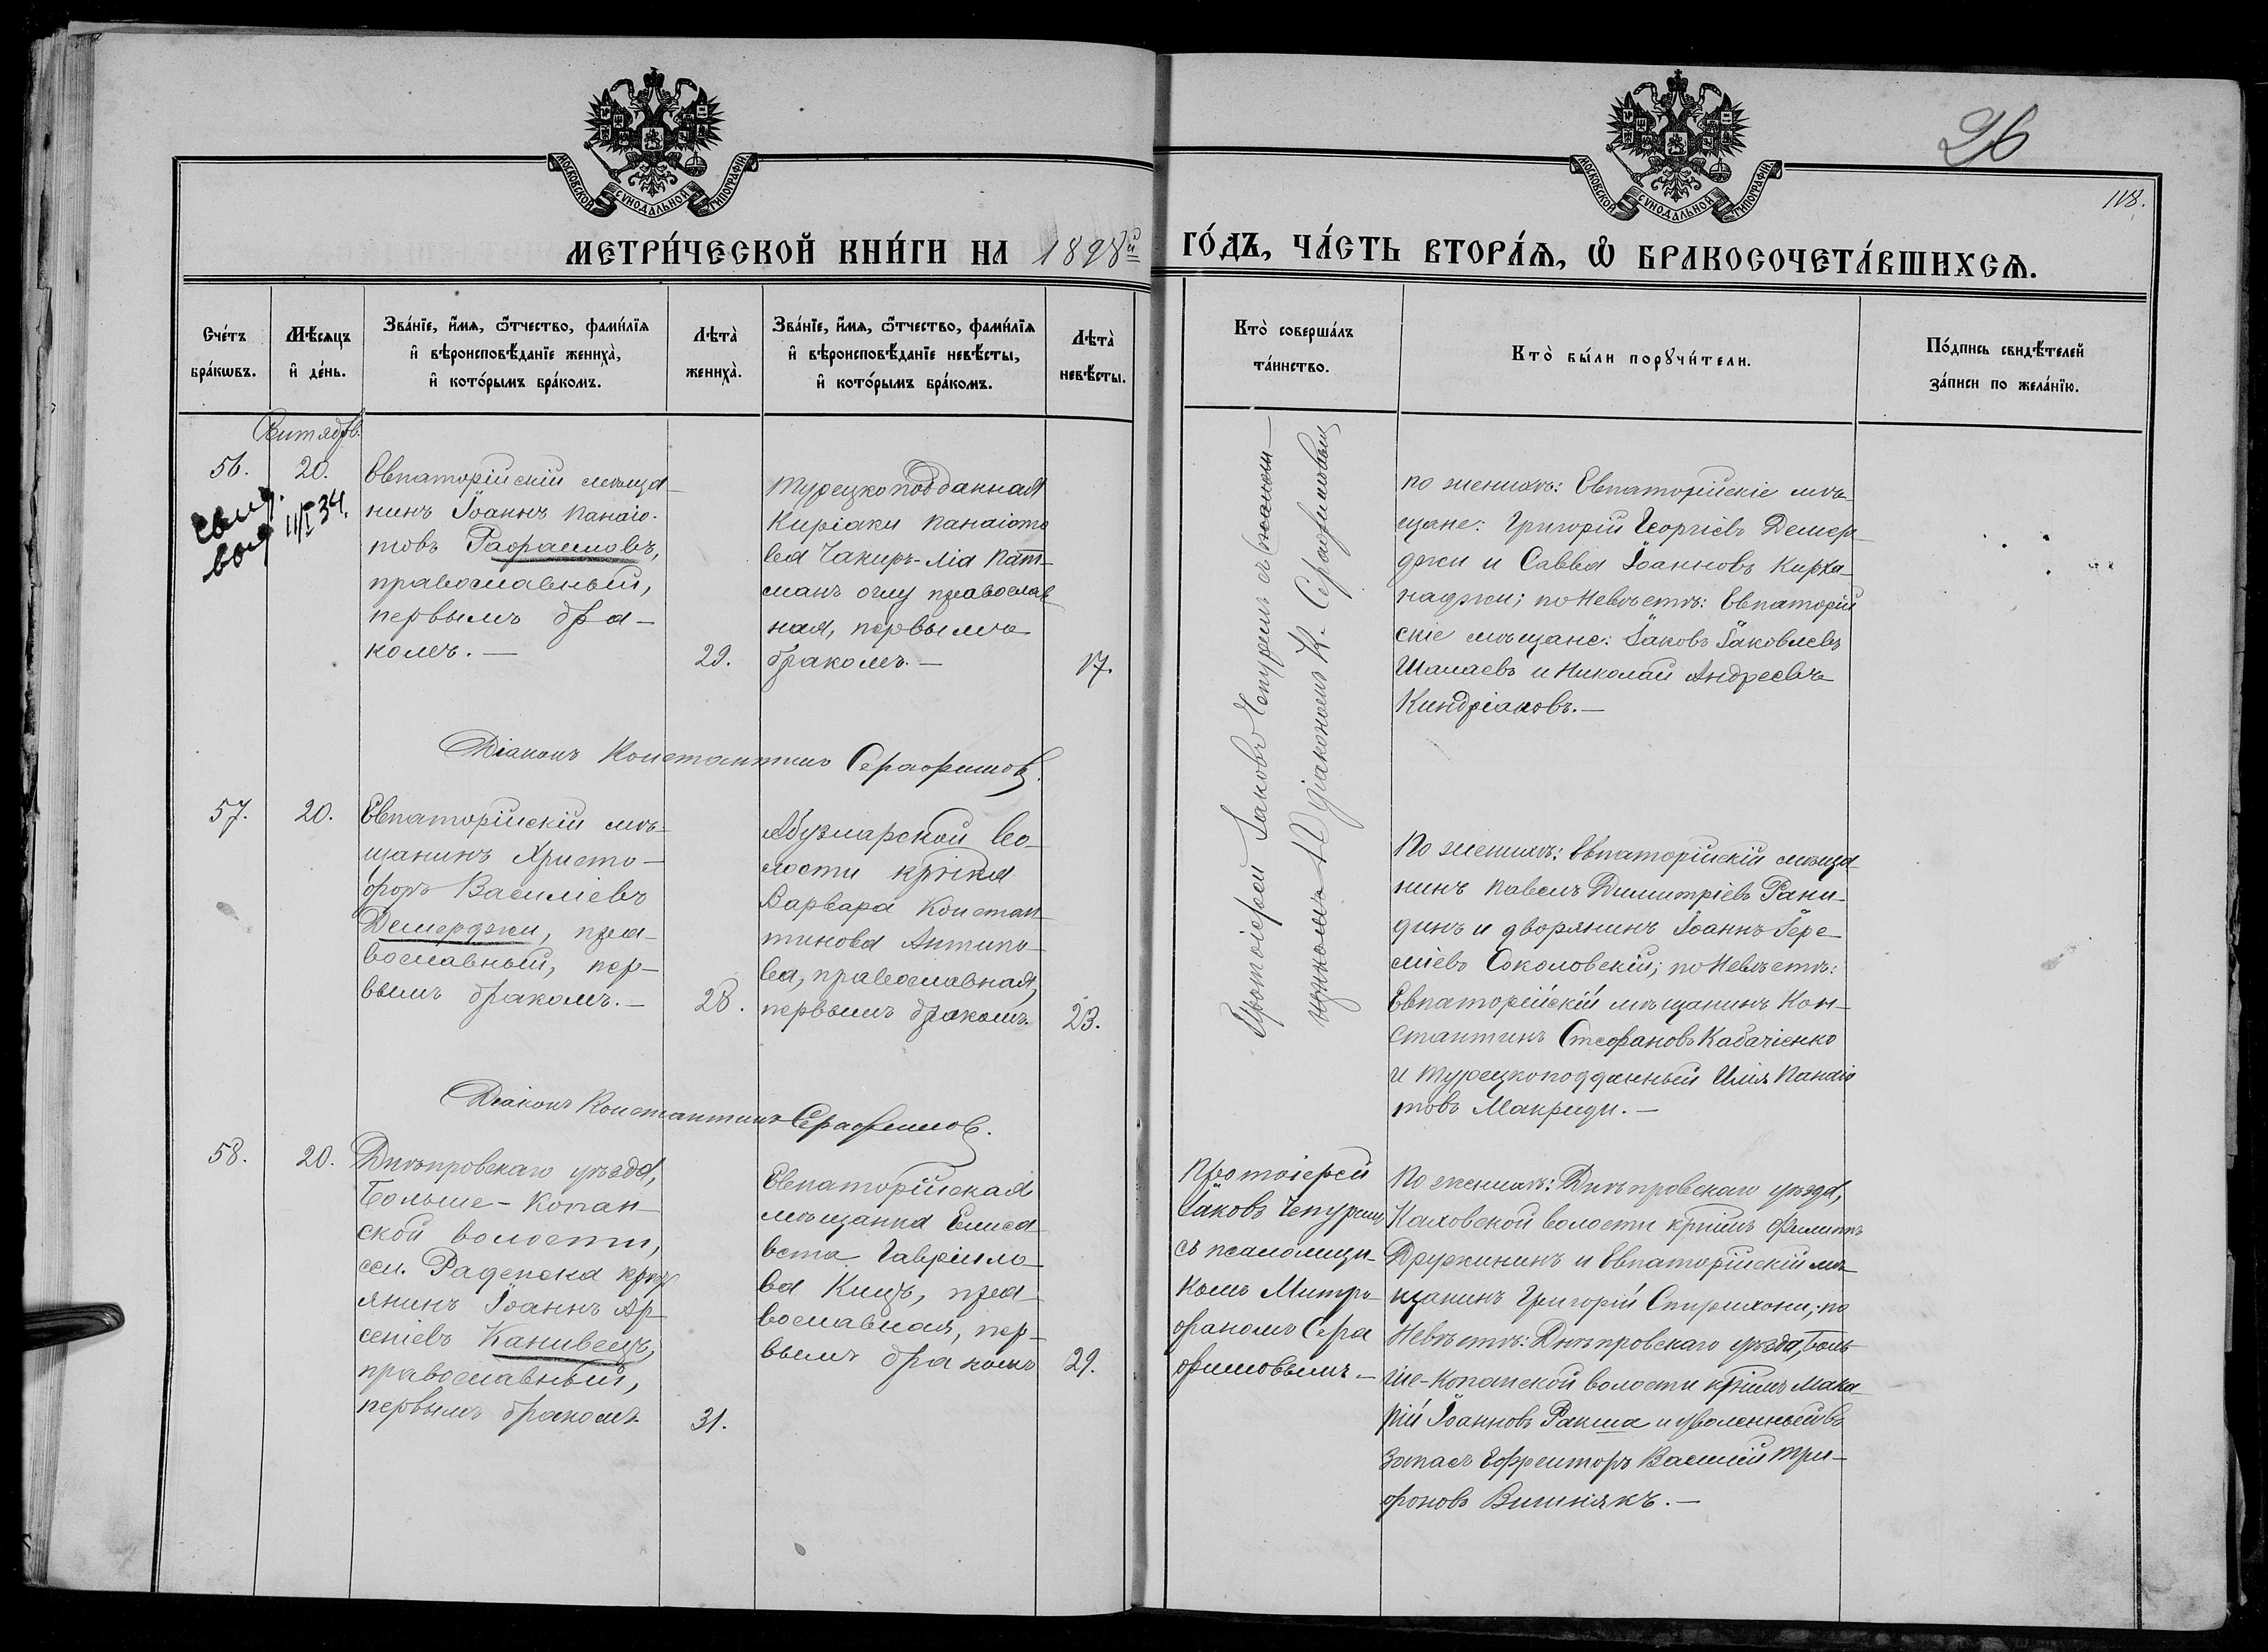 МОСКОВСКОЙ СѴНОДАЛЬНОЙ ТИПОГРАФІИ
МОСКОВСКОЙ СѴНОДАЛЬНОЙ ТИПОГРАФІИ
26
118.
МЕТРИ́ЧЕСКОЙ КНИ́ГИ НА 1898й ГО́ДЪ, ЧА́СТЬ ВТОРА́Ѧ, Ѡ҆ БРАКОСОЧЕТА́ВШИХСѦ.
Сче́тъ
бра́кѡвъ.
Мѣ́сѧцъ
и҆ де́нь.
Зва́нїе, и҆́мѧ, ѻ҆́тчество, фами́лїѧ
и҆ вѣроисповѣ́данїе жениха̀,
и҆ кото́рымъ бра́комъ.
Лѣ́та̀
жениха̀.
Зва́нїе, и҆́мѧ, ѻ҆́тчество, фами́лїѧ
и҆ вѣроисповѣ́данїе невѣ́сты,
и҆ кото́рымъ бра́комъ.
Лѣ́та̀
невѣ́сты.
Кто̀ соверша́лъ
та́инство.
Кто̀ бы́ли порꙋчи́тели.
По́дпись свидѣ́телей
за́писи по жела́нїю.
Сентябрь.
56.
20.
11/I 34.
Евпаторійскій мѣща-
нинъ Іоаннъ Панаіо-
товъ Рафаиловъ,
православный,
первымъ бра-
комъ.—
29.
Турецкоподданная
Киріаки Панаіото
ва Чакиръ-
огму православ
ная, первымъ
бракомъ.—
17.
Протоіерей Іаковъ Чепуринъ съ псалом-
щикомъ діакономъ К. Серафимовымъ
по женихѣ: Евпаторійскіе мѣ-
щане: Григорій Георгіевъ Демер-
джи и Савва Іоанновъ Карха-
наджи; по невѣстѣ: Евпаторій
скіе мѣщане: Іаковъ Іаковлевъ
Шалаевъ и Николай Андреевъ
Киндріаковъ.—
Діаконъ Константинъ Серафимовъ.
57.
20.
Евпаторійскій мѣ-
щанинъ Христо-
форъ Василіевъ
Демерджи, пра-
вославный, пер-
вымъ бракомъ.—
28.
Абузларской во-
лости кр-ка
Варвара Констан-
тинова Антипо-
ва, православная,
первымъ бракомъ.
23.
По женихѣ: Евпаторійскій мѣща
нинъ Павелъ Димитріевъ
и дворянинъ Іоаннъ Іере-
міевъ Соколовскій; по невѣстѣ:
Евпаторійскій мѣщанинъ Кон-
стантинъ Стефановъ Кабаченко
и турецкоподданный Илія Панаіо
товъ Макриди.—
Діаконъ Константинъ Серафимовъ.
58.
20.
Днѣпровскаго уѣзда,
Больше-Копан-
ской волости,
сел. Раденска крест
янинъ Іоаннъ Ар-
сеніевъ Канивецъ,
православный,
первымъ бракомъ.
31.
Евпаторійская
мѣщанка Елиса-
вета Гавріило-
ва Кицъ, пра-
вославная, пер-
вымъ бракомъ
29.
Протоіерей
Іаковъ Чепуринъ
съ псаломщи-
комъ Митро-
фаномъ Сера
фимовымъ.—
По женихѣ: Днѣпровскаго уѣзда,
Каховской волости кр-нинъ Филиппъ
Дружининъ и Евпаторійскій мѣ-
щанинъ Григорій Спирихони; по
невѣстѣ: Днѣпровскаго уѣзда, Боль
ше-Копанской волости кр-нинъ Мака
рій Іоанновъ Ракша и уволенный въ
запасъ Ефрейторъ Василій Три-
фоновъ Вишнякъ.—